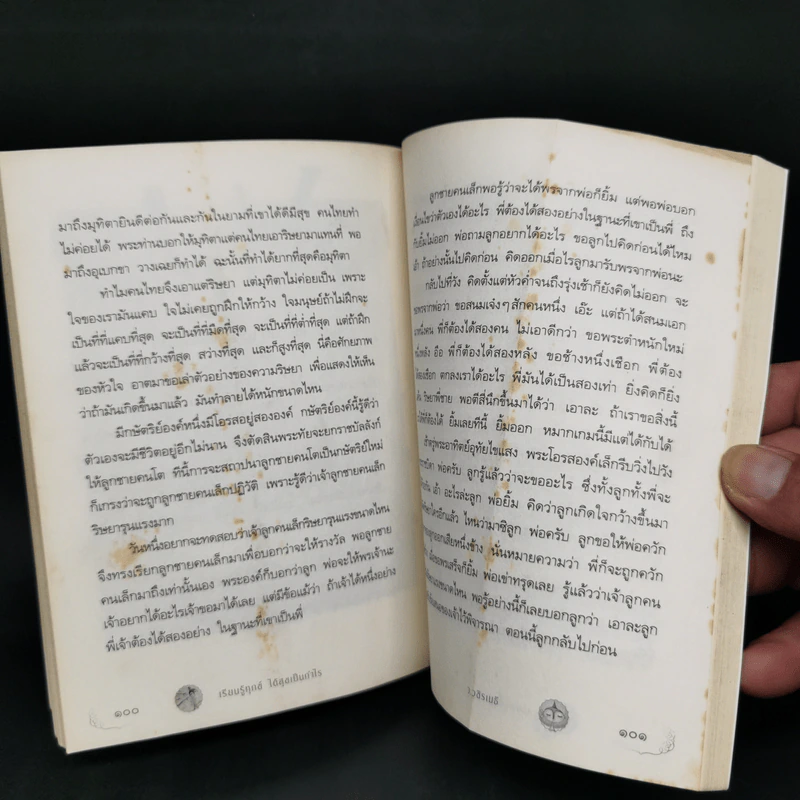 มาถึงมุทิตายินดีต่อกันและกันในยามที่เขาได้ดีมีสุข คนไทยทำ
ไม่ค่อยได้ พระท่านบอกให้มุทิตาแต่คนไทยเอาริษยามาแทนที่ พอ
มาถึงอุเบกขา วางเฉยก็ทำได้ ฉะนั้นที่ทำได้ยากที่สุดคือมุทิตา
ทำไมคนไทยจึงเอาแต่ริษยา แต่มุทิตาไม่ค่อยเป็น เพราะ
ใจของเรามันแคบ ใจไม่เคยถูกฝึกให้กว้าง ใจมนุษย์ถ้าไม่ฝึกจะ
เป็นที่ที่แคบที่สุด จะเป็นที่ที่มืดที่สุด จะเป็นที่ที่ต่ำที่สุด แต่ถ้าฝึก
แล้วจะเป็นที่ที่กว้างที่สุด สว่างที่สุด และก็สูงที่สุด นี่คือศักยภาพ
ของหัวใจ อาตมาขอเล่าตัวอย่างของความริษยา เพื่อแสดงให้เห็น
ว่าถ้ามันเกิดขึ้นมาแล้ว มันทำลายได้หนักขนาดไหน
มีกษัตริย์องค์หนึ่งมีโอรสอยู่สององค์ กษัตริย์องค์นี้รู้ดีว่า
ตัวเองจะมีชีวิตอยู่อีกไม่นาน จึงตัดสินพระทัยจะยกราชบัลลังก์
ให้ลูกชายคนโต ทีนี้การจะสถาปนาลูกชายคนโตเป็นกษัตริย์ใหม่
ก็เกรงว่าจะถูกลูกชายคนเล็กปฏิวัติ เพราะรู้ดีว่าเจ้าลูกชายคนเล็ก
ริษยารุนแรงมาก
วันหนึ่งอยากจะทดสอบว่าเจ้าลูกคนเล็กริษยารุนแรงขนาดไหน
จึงทรงเรียกลูกชายคนเล็กมาเพื่อบอกว่าจะให้รางวัล พอลูกชาย
คนเล็กมาถึงเท่านั้นเอง พระองค์ก็บอกว่าลูก พ่อจะให้พรเจ้านะ
เจ้าอยากได้อะไรเจ้าขอมาได้เลย แต่มีข้อแม้ว่า ถ้าเจ้าได้หนึ่งอย่าง
พี่เจ้าต้องได้สองอย่าง ในฐานะที่เขาเป็นพี่
๑๐๐
เรียนรู้ทุกข์ ได้สุขเป็นกำไร
ลูกชายคนเล็กพอรู้ว่าจะได้พรจากพ่อก็ยิ้ม แต่พอพ่อบอก
ว่าตัวเองได้อะไร พี่ต้องได้สองอย่างในฐานะที่เขาเป็นพี่ ถึง
ยิ้มไม่ออก พ่อถามลูกอยากได้อะไร ขอลูกไปคิดก่อนได้ไหม
ถ้าอย่างนั้นไปคิดก่อน คิดออกเมื่อไรลูกมารับพรจากพ่อนะ
กลับไปที่วัง คิดตั้งแต่หัวค่ำจนถึงรุ่งเช้าก็ยังคิดไม่ออก จะ
ขอพรจากพ่อว่า ขอสนมเจ๋งๆ สักคนหนึ่ง เอ๊ะ แต่ถ้าได้สนมเอก
คน พี่ก็ต้องได้สองคน ไม่เอาดีกว่า ขอพระตำหนักใหม่
หลัง อือ พี่ก็ต้องได้สองหลัง ขอช้างหนึ่งเชือก พี่ต้อง
ได้สองเชือก ตกลงเราได้อะไร พี่มันได้เป็นสองเท่า ยิ่งคิดก็ยิ่ง
ริษยาพี่ชาย พอตีสี่นึกขึ้นมาได้ว่า เอาละ ถ้าเราขอสิ่งนี้
พี่ต้องได้ ยิ้มเลยทีนี้ ยิ้มออก หมากเกมนี้มีแต่ได้กับได้
เช้าตรู่พระอาทิตย์อุทัยไขแสง พระโอรสองค์เล็กรีบวิ่งไปวัง
พ่อครับ ลูกรู้แล้วว่าจะขออะไร ซึ่งทั้งลูกทั้งพี่จะ
อะไรล่ะลูก พ่อยิ้ม คิดว่าลูกเกิดใจกว้างขึ้นมา
ไหนว่ามาซิลูก พ่อครับ ลูกขอให้พ่อควัก
ลูกออกเสียหนึ่งข้าง นั่นหมายความว่า พี่ก็จะถูกควัก
พอพระเสร็จก็ยิ้ม พ่อเข่าทรุดเลย รู้แล้วว่าเจ้าลูกคน
แรงขนาดไหน พอรู้อย่างนี้ก็เลยบอกลูกว่า เอาละลูก
ของเจ้าไว้พิจารณา ตอนนี้ลูกกลับไปก่อน
ว.วชิรเมธี
๑๐๑